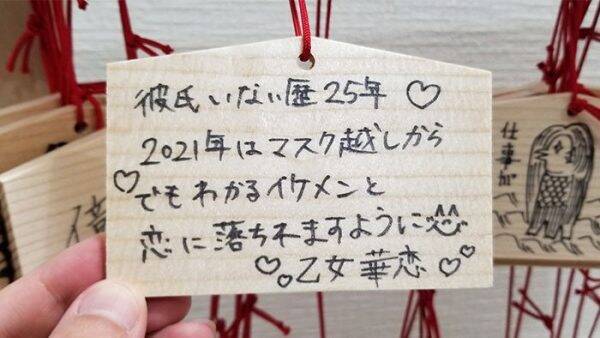 彼氏いない歴25年♡
2021年はマスク越しから
♡でもわかるイケメンと
恋に落ちれますように
♡♡乙女華恋♡♡
仕事